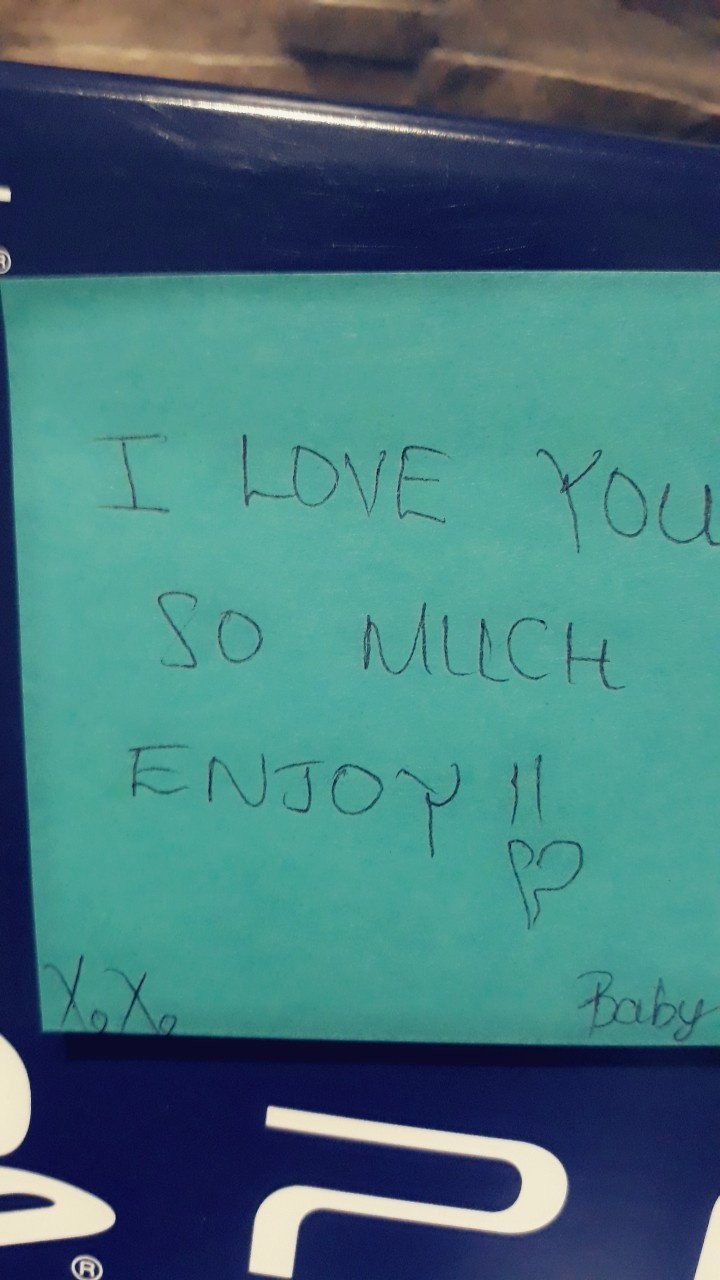 ®
I LOVE YOU
SO MUCH
ENJOY !!
XoXo
Baby
P
®